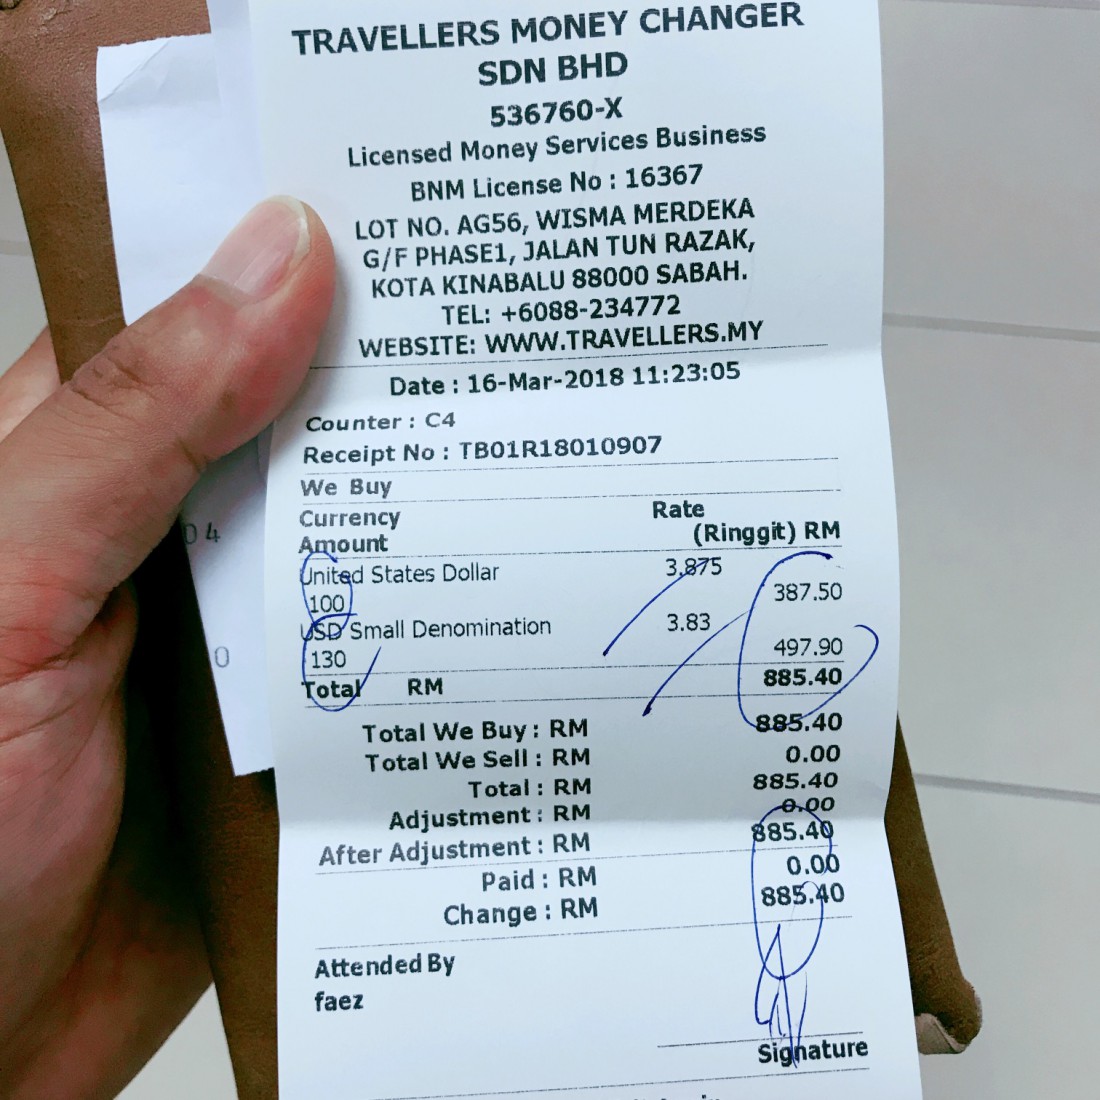 TRAVELLERS MONEY CHANGER
SDN BHD
536760-X
Licensed Money Services Business
BNM License No : 16367
LOT NO. AG56, WISMA MERDEKA
G/F PHASE1, JALAN TUN RAZAK,
KOTA KINABALU 88000 SABAH.
TEL: +6088-234772
WEBSITE: WWW.TRAVELLERS.MY
Date : 16-Mar-2018 11:23:05
Counter : C4
Receipt No : TB01R18010907
We Buy
Currency Rate
Amount (Ringgit) RM
United States Dollar 3.875
100 387.50
USD Small Denomination 3.83
130 497.90
Total RM 885.40
Total We Buy : RM 885.40
Total We Sell : RM 0.00
Total : RM 885.40
Adjustment : RM 0.00
After Adjustment : RM 885.40
Paid : RM 0.00
Change : RM 885.40
Attended By
faez
Signature
04
0